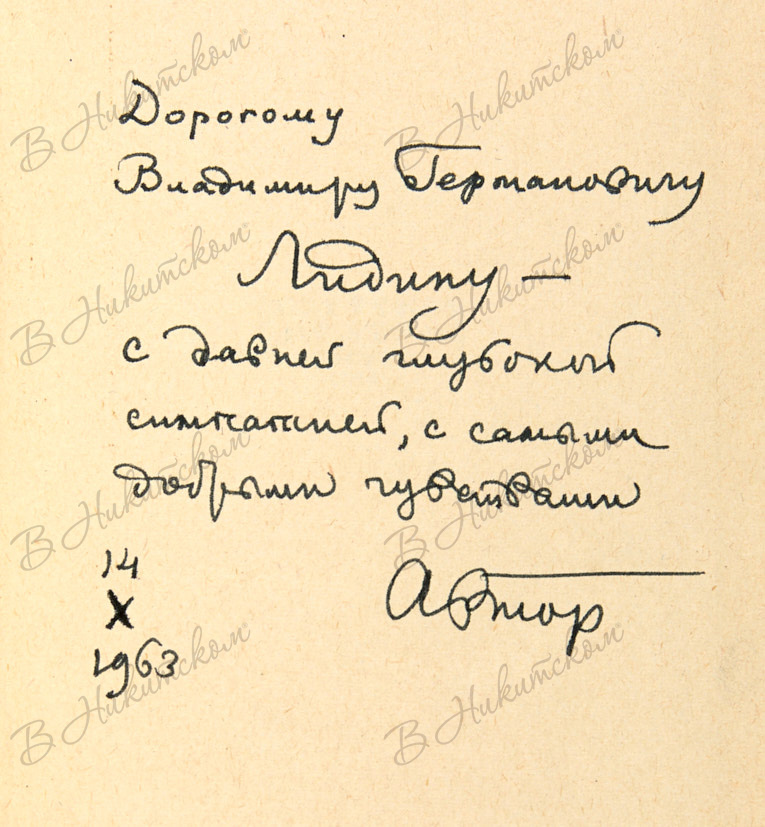 Дорогому
Владимиру Германовичу
Лидину —
с давней глубокой
симпатией, с самыми
добрыми чувствами
14
X
1963
Автор
В Никитском
В Никитском
В Никитском
В Никитском
В Никитском
В Никитском
В Никитском
В Никитском